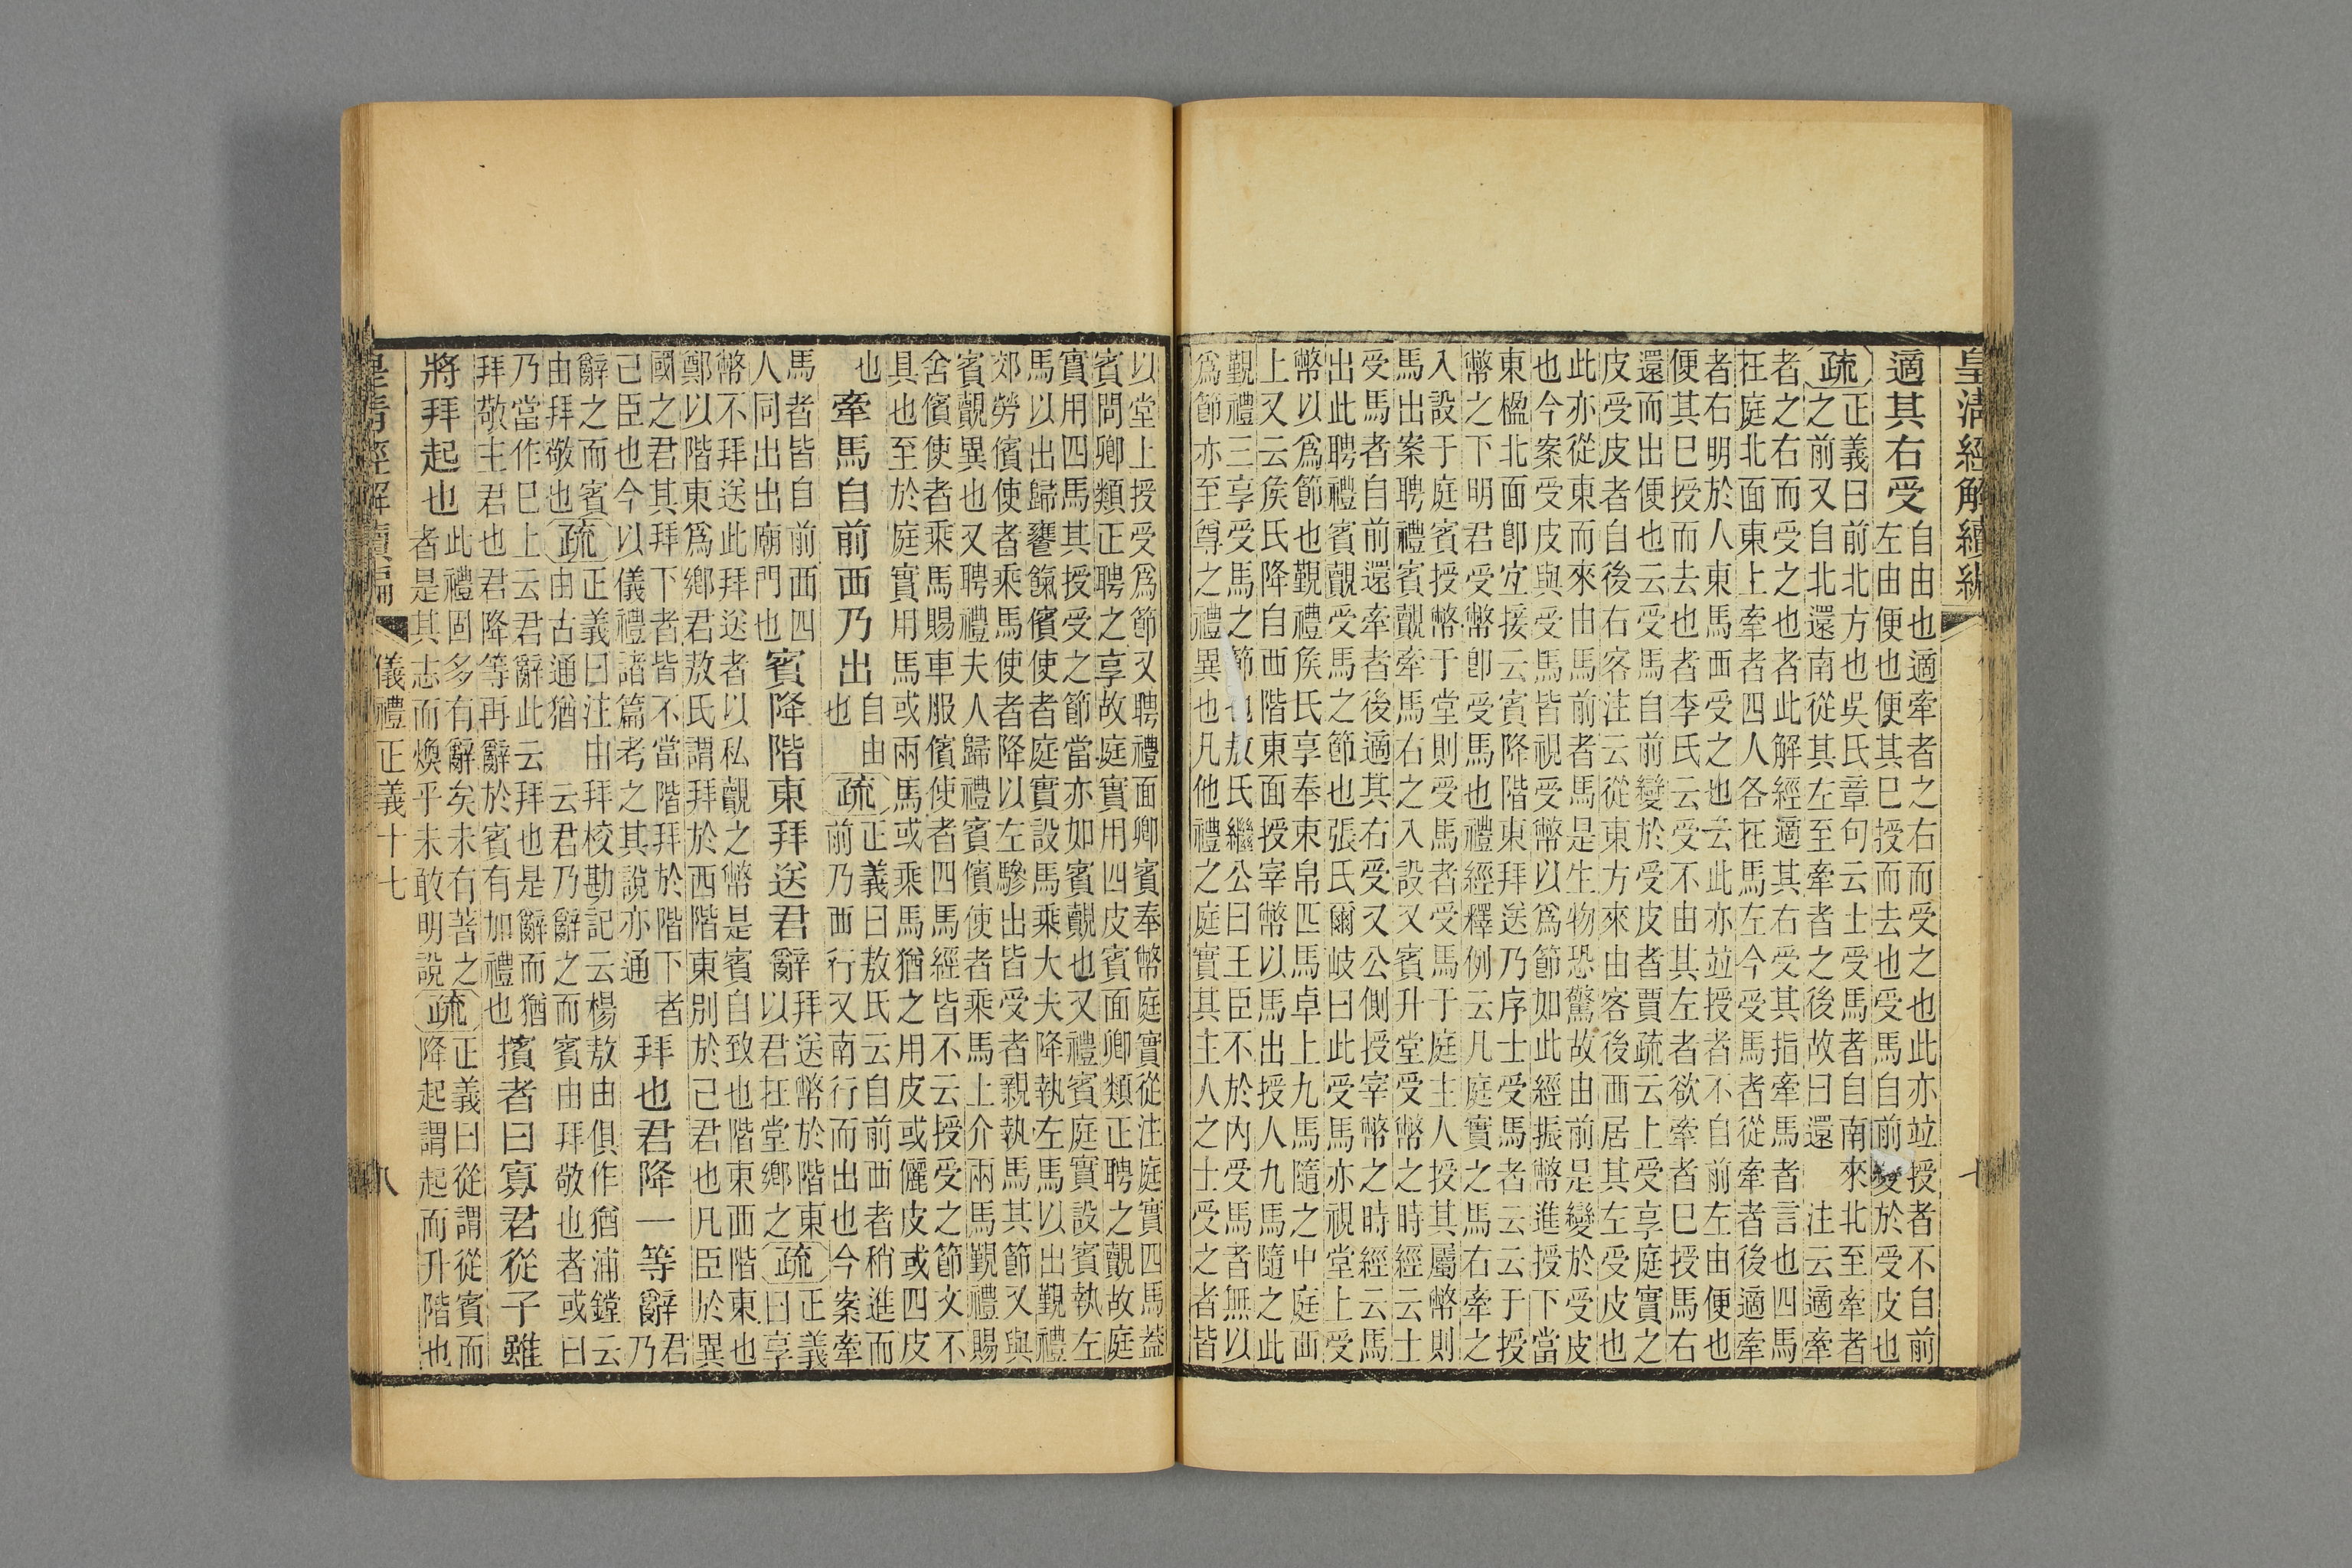 皇清經解續編
適其右受
自由也適牽者之右而受之也此亦竝授者不自前
左由便也便其已授而去也受馬自前變於受皮也
疏
正義曰前北方也吳氏章句云士受馬者自南來北至牽者
之前又自北還南從其左至牽者之後故曰還 注云適牽
者之右而受之也者此解經適其右受其指牽馬者言也四馬
在庭北面東上牽者四人各在馬左今受馬者從牽者後適牽
者右明於人東馬西受之也云此亦竝授者不自前左由便也
便其已授而去也者李氏云受不由其左者欲牽者已授馬右
還而出便也云受馬自前變於受皮者賈疏云上受享庭實之
皮受皮者自後右客注云從東方來由客後西居其左受皮也
此亦從東而來由馬前者馬是生物恐驚故由前是變於受皮
也今案受皮與受馬皆視受幣以爲節如此經振幣進授下當
東楹北面卽宜接云賓降階東拜送乃序士受馬者云云于授
幣之下明君受幣卽受馬也禮經釋例云凡庭實之馬右牽之
入設于庭賓授幣于堂則受馬者受馬于庭主人授其屬幣則
馬出案聘禮賓覿牽馬右之入設又賓升堂受幣之時經云士
受馬者自前還牽者後適其右受又公側授宰幣之時經云馬
出此聘禮賓覿受馬之節也張氏爾岐曰此受馬亦視堂上受
幣以爲節也覲禮矦氏享奉束帛匹馬卓上九馬隨之中庭西
上又云矦氏降自西階東面授宰幣以馬出授人九馬隨之此
覲禮三享受馬之節也敖氏繼公曰王臣不於內受馬者無以
爲節亦至尊之禮異也凡他禮之庭實其主人之士受之者皆
以堂上授受爲節又聘禮面卿賓奉幣庭實從注庭實四馬葢
賓問卿類正聘之享故庭實用四皮賓面卿類正聘之覿故庭
實用四馬其授受之節當亦如賓覿也又禮賓庭實設賓執左
馬以出歸饔餼儐使者庭實設馬乘大夫降執左馬以出覲禮
郊勞儐使者乘馬使者降以左驂出皆受者親執馬其節又與
賓覿異也又聘禮夫人歸禮賓儐使者乘馬上介兩馬覲禮賜
舍儐使者乘馬賜車服儐使者四馬經皆不云授受之節文不
具也至於庭實用馬或兩馬或乘馬猶之用皮或儷皮或四皮
也
牽馬自前西乃出
自由
也
疏
正義曰敖氏云自前西者稍進而
前乃西行又南行而出也今案牽
馬者皆自前西四
人同出出廟門也
賓降階東拜送君辭
拜送幣於階東
以君在堂鄉之
疏
正義
曰享
幣不拜送此拜送者以私覿之幣是賓自致也階東西階東也
鄭以階東爲鄉君敖氏謂拜於西階東別於己君也凡臣於異
國之君其拜下者皆不當階拜於階下者
己臣也今以儀禮諸篇考之其說亦通
拜也君降一等辭
君
乃
辭之而賓
由拜敬也
疏
正義曰注由拜校勘記云楊敖由俱作猶浦鏜云
由古通猶 云君乃辭之而賓由拜敬也者或曰
乃當作已上云君辭此云拜也是辭而猶
拜敬主君也君降等再辭於賓有加禮也
擯者曰寡君從子雖
將拜起也
此禮固多有辭矣未有著之
者是其志而煥乎未敢明說
疏
正義曰從謂從賓而
降起謂起而升階也
儀禮正義十七
八